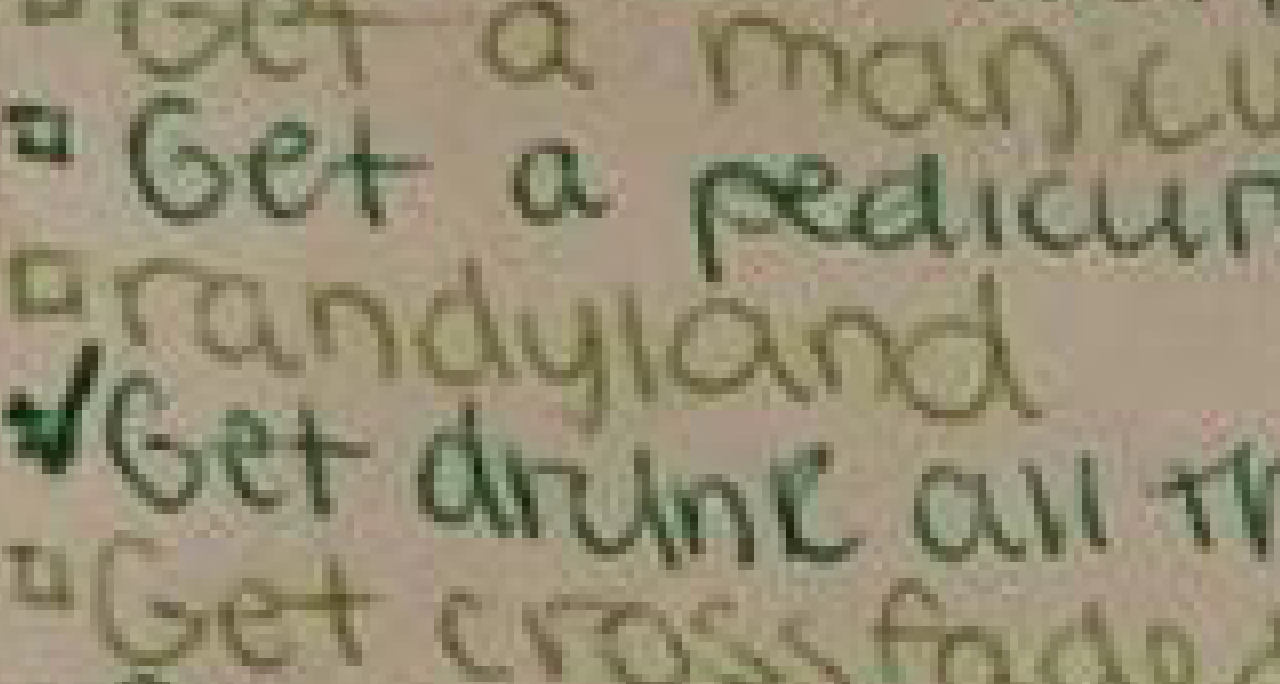 Get a manicu
Get a pedicur
randyland
Get drunk all th
Get crossfade